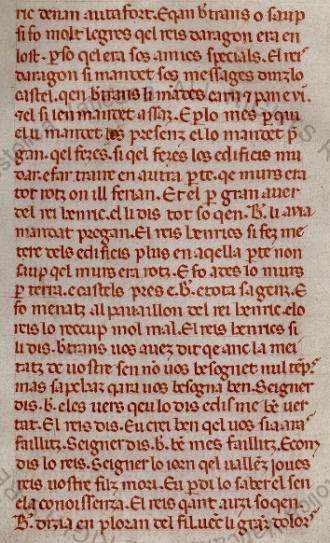 ric denan autafort. E qan b̄trans o saup
si fo molt legres qel reis daragon era en
lost. p̱ so qel era sos amics specials. El rei
daragon si mandet sos messages dinz lo
castel. qen b̄trans li mādes carn ⁊ pan e vī.
⁊el si len mandet assaz. E p̱ lo mes p̱ qui
el li mandet los presenz el lo mandet p̄
gan. qel fezes. si qel fezes los edificis mu
dar. e far traire en autra p̱te. qe murs era
tot rotz on ill ferian. Et el p̱ gran auer
del rei henric. el li dis tot so qen .B̄. li auia
mandat pregan. El reis henrics si fez me
tere dels edificis plus en aqella p̱te on
saup qel murs era rotz. E fo ades lo murs
p̱ terra. e castels pres e .b̄. e tota sa genz. E
fo menatz al pauaillon del rei henric. e lo
reis lo receup mol mal. El reis henrics si
li dis. b̄trans uos auez dit qe anc la mei
tatz de uostre sen nō uos besognet nul tēp̄s.
mas sapchaz qara uos besogna ben. Seigner
dis .b̄. el es uers qeu lo dis e dis me bē ver
tat. El reis dis. Eu crei ben qel uos sia ara
faillitz. Seigner dis .b̄. bē mes faillitz. E com
dis lo reis. Seigner lo iorn qel uallēz ioues
reis uostre filz mori. Eu p̱di lo saber el sen
e la conoissenza. El reis qant auzi so qen
.B̄. dizia en ploran del fil. uēc li grāz dolors